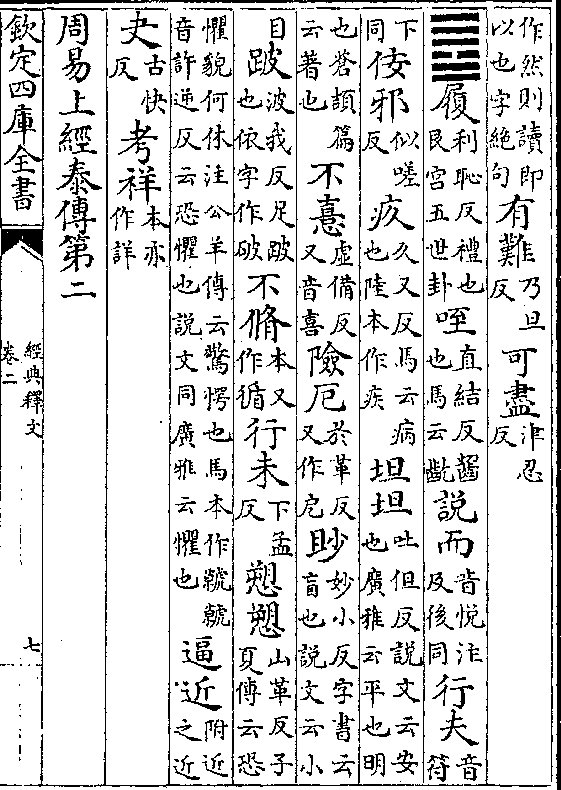 作然則讀即以也字絕句有難乃旦反可盡津忍反
䷉履利恥反禮也艮宮五世卦咥直結反齧也馬云齕說而音悅注及後同行夫音符
下同佞邪似嗟反疚久又反馬云病也陸本作疾坦坦吐但反說文云安也廣雅云平也明
也蒼頡篇云著也不憙虛備反又音喜險厄於革反又作戹眇妙小反字書云盲也說文云小
目跛波我反足跛也依字作破不脩本又作循行未下孟反愬愬山革反子夏傳云恐
懼貌何休注公羊傳云驚愕也馬本作虩虩音許逆反云恐懼也說文同廣雅云懼也逼近附近之近
夬古快反考祥本亦作詳
周易上經泰傳第二
欽定四庫全書
經典釋文
卷二
七